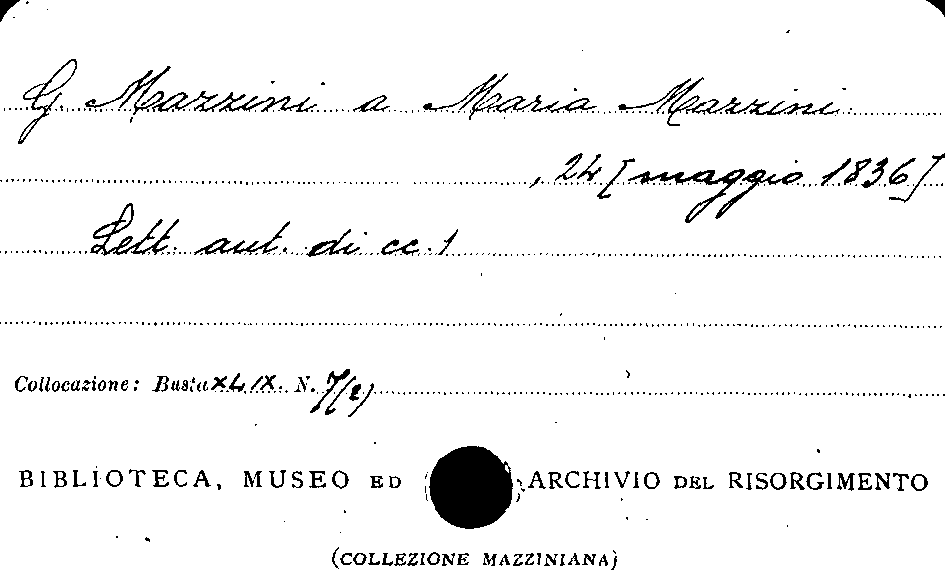 G. Mazzini a Maria Mazzini
, 24 [maggio 1836]
Lett. aut. di cc. 1
Collocazione: Busta XLIX. N. 7/(2)
BIBLIOTECA, MUSEO ED ARCHIVIO DEL RISORGIMENTO
(COLLEZIONE MAZZINIANA)